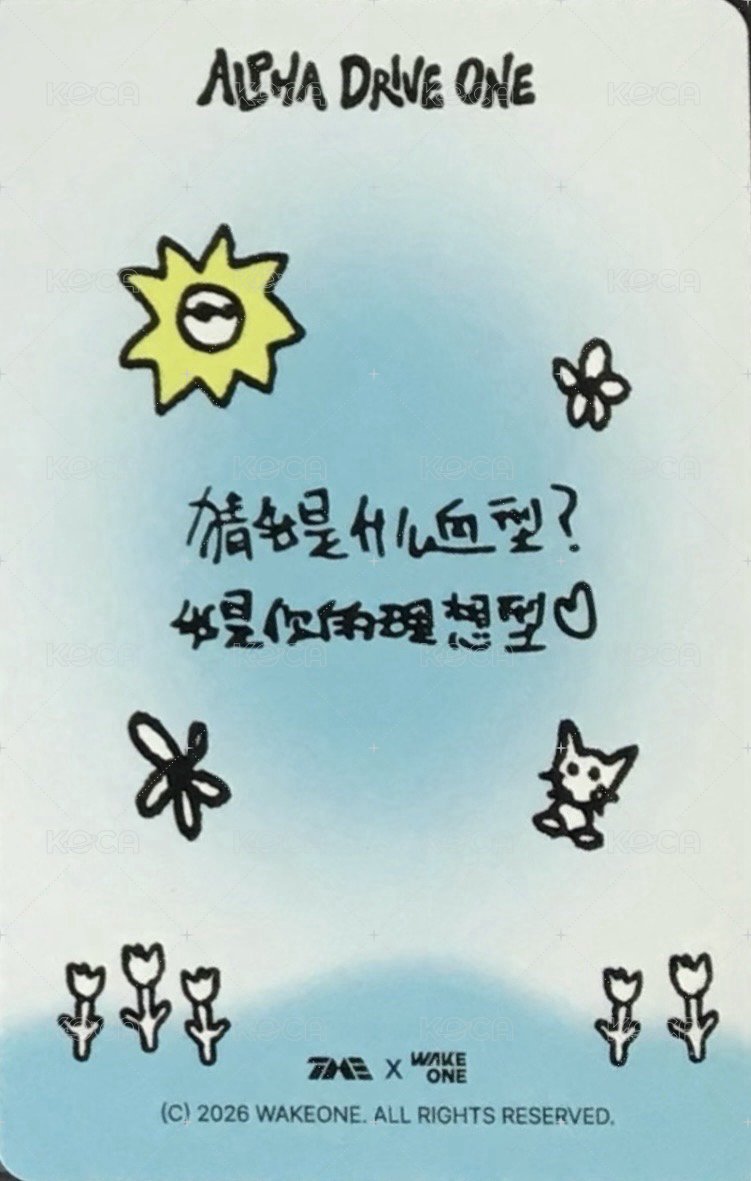 ALPHA DRIVE ONE
猜我是什么血型?
我是你的理想型♡
TME X WAKE ONE
(C) 2026 WAKEONE. ALL RIGHTS RESERVED.